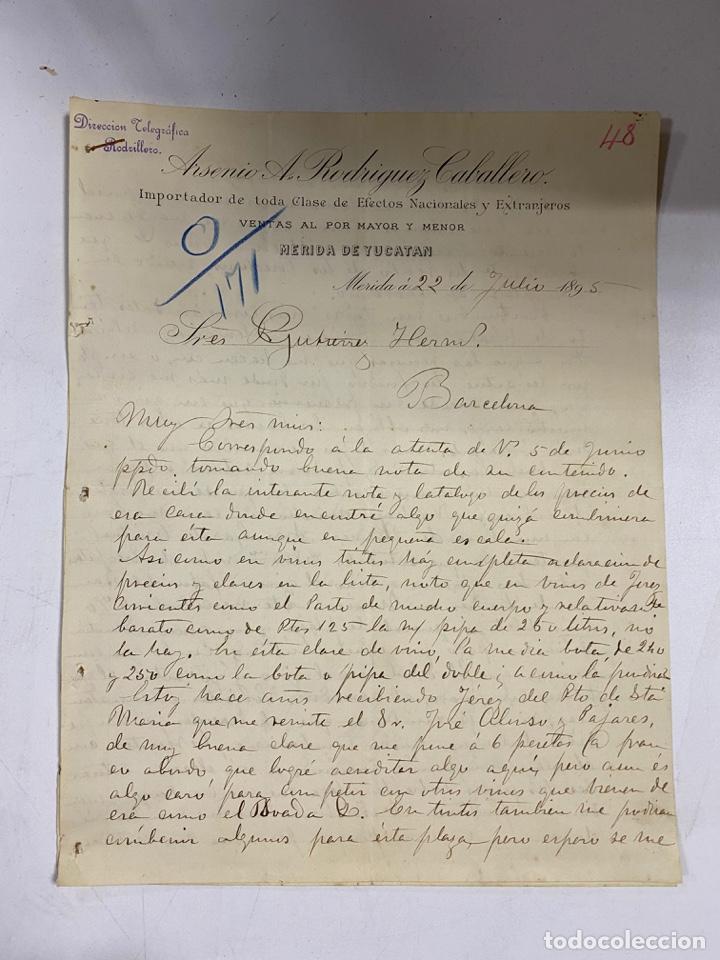 48
Direccion Telegráfica
Rodrillero.
Arsenio A. Rodriguez Caballero.
Importador de toda Clase de Efectos Nacionales y Extranjeros
VENTAS AL POR MAYOR Y MENOR
MERIDA DE YUCATAN
0/171
Merida á 22 de Julio 1895
Sres Gutierrez Herms.
Barcelona
Muy Sres mios:
Correspondo á la atenta de V. 5 de Junio
ppdo. tomando buena nota de su contenido.
Recibí la nota y Catalogo de los precios de
esa casa donde encontré algo que quizá
para ésta aunque en pequeña escala.
Asi como en vinos tintos háy completa aclaracion de
precios y clases en la lista, noto que en vinos de Jerez
corrientes como el Pasto de mucho cuerpo y relativamte
barato como de Ptas 125 la m/ pipa de 260 litros, no
la hay. En ésta clase de vino, la media bota de 240
y 250 como la bota o pipa del doble; acomo la
Estoy hace años recibiendo Jérez del Pto de Sta
Maria que me remite el Sr. José Alonso y Pajares,
de muy buena clase que me pone á 6 pesetas @ fran
co abordo que logré acreditar algo aquí, pero aun es
algo caro para competir con otros vinos que vienen de
esa como el En tintos tambien me podrian
algunos para ésta plaza, pero espero se me
todocoleccion
todocoleccion.net